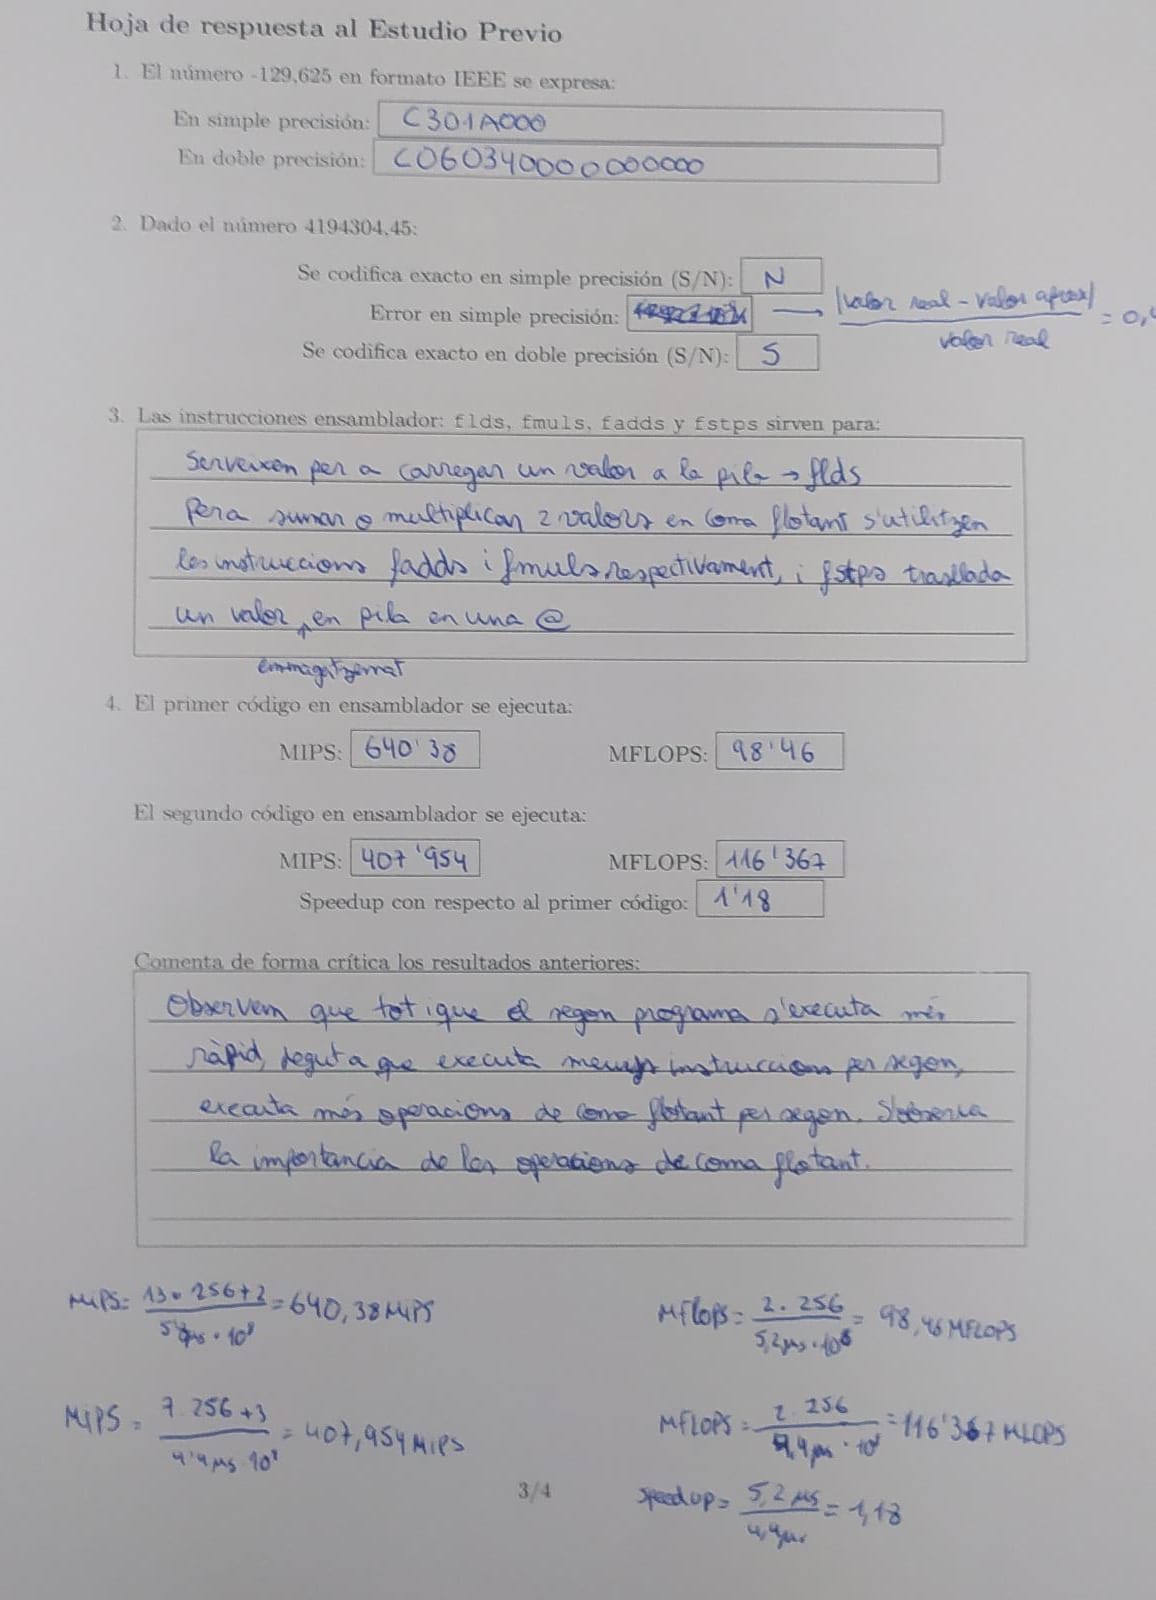 Hoja de respuesta al Estudio Previo
1. El número -129,625 en formato IEEE se expresa:
En simple precisión: C301A000
En doble precisión: C060340000000000
2. Dado el número 4194304,45:
Se codifica exacto en simple precisión (S/N): N
Error en simple precisión: → |valor real - valor aprox| / valor real = 0,
Se codifica exacto en doble precisión (S/N): S
3. Las instrucciones ensamblador: flds, fmuls, fadds y fstps sirven para:
Serveixen per a carregar un valor a la pila → flds
Per a sumar o multiplicar 2 valors en coma flotant s'utilitzen
les instruccions fadds i fmuls respectivament, i fstps trasllada
un valor emmagatzemat en pila en una @
4. El primer código en ensamblador se ejecuta:
MIPS: 640'38 MFLOPS: 98'46
El segundo código en ensamblador se ejecuta:
MIPS: 407'954 MFLOPS: 116'367
Speedup con respecto al primer código: 1'18
Comenta de forma crítica los resultados anteriores:
Observem que tot i que el segon programa s'executa més
ràpid, degut a que executa menys instruccions per segon,
executa més operacions de coma flotant per segon. S'observa
la importancia de les operacions de coma flotant.
MIPS = 13·256+2 / = 640,38 MIPS MFlops = 2·256 / 5,2μs·10⁶ = 98,46 MFLOPS
MIPS = 7·256+3 / 4'4μs·10⁶ = 407,954 MIPS MFLOPS = 2·256 / 4,4μs·10⁶ = 116'367 MFLOPS
3/4 speedup = 5,2 μs / 4,4μs = 1,18